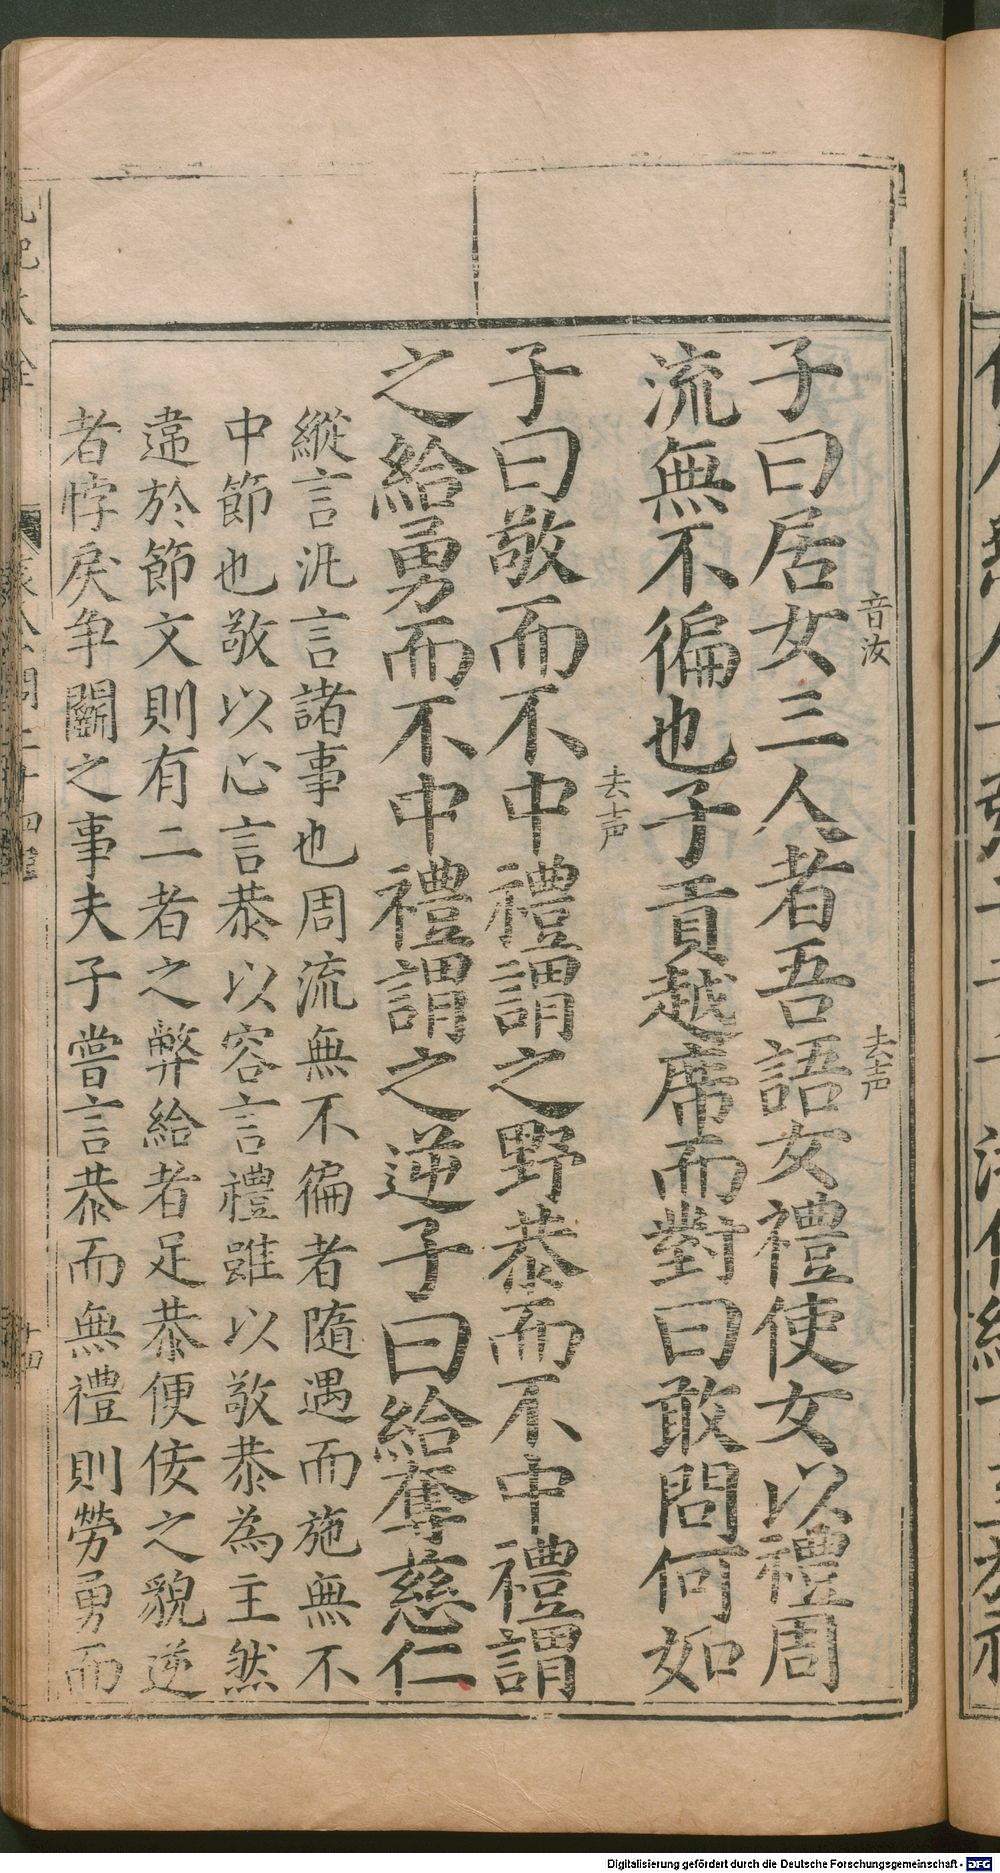 音汝
去声
子曰居女三人者吾語女禮使女以禮周
流無不徧也子貢越席而對曰敢問何如
去声
子曰敬而不中禮謂之野恭而不中禮謂
之給勇而不中禮謂之逆子曰給奪慈仁
縱言汎言諸事也周流無不徧者隨遇而施無不
中節也敬以心言恭以容言禮雖以敬恭為主然
違於節文則有二者之弊給者足恭便佞之貌逆
者悖戾争鬭之事夫子嘗言恭而無禮則勞勇而
Digitalisierung gefördert durch die Deutsche Forschungsgemeinschaft - DFG